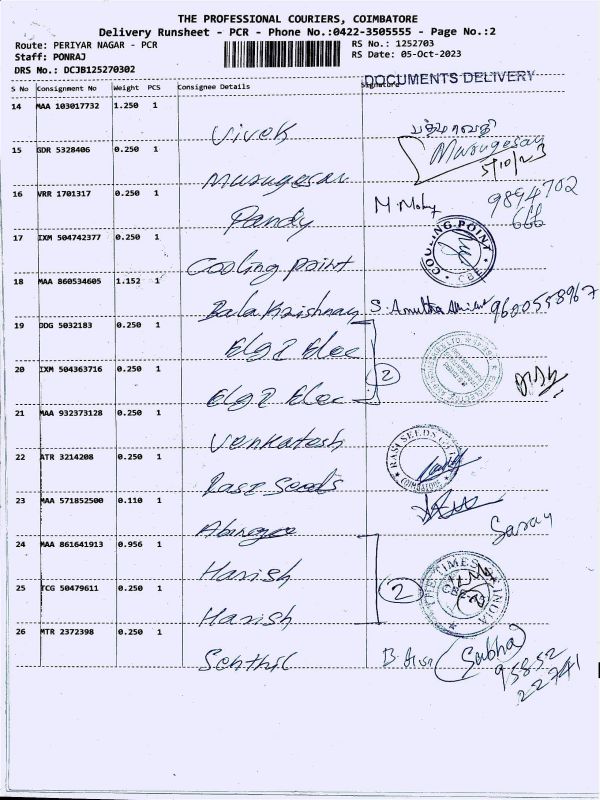 THE PROFESSIONAL COURIERS, COIMBATORE
Delivery Runsheet - PCR - Phone No.:0422-3505555 - Page No.:2
Route: PERIYAR NAGAR - PCR
RS No.: 1252703
Staff: PONRAJ
RS Date: 05-Oct-2023
DRS No.: DCJB125270302
DOCUMENTS DELIVERY
S No Consignment No Weight PCS Consignee Details Signature
14 MAA 103017732 1.250 1
Vivek பத்மாவதி
15 GDR 5328406 0.250 1 Murugesan
5/10/23
Murugesan
16 VRR 1701317 0.250 1 9894702
M. 666
Pandy
17 IXM 504742377 0.250 1 COOLING POINT CBE
Cooling Point
18 MAA 860534605 1.152 1
Bala Krishnan S. 9600558967
19 DDG 5032183 0.250 1
Elgi Elec
20 IXM 504363716 0.250 1 2
Elgi Elec
21 MAA 932373128 0.250 1
Venkatesh RASI SEEDS
22 ATR 3214208 0.250 1
Rasi Seeds
23 MAA 571852500 0.110 1
Saray
24 MAA 861641913 0.956 1
Harish THE TIMES OF INDIA
25 TCG 50479611 0.250 1 2 CBE
Harish
26 MTR 2372398 0.250 1
Senthil B. Subha
95852
22741